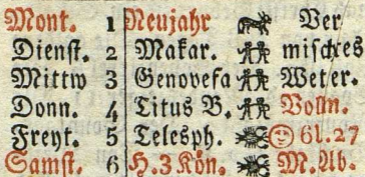 Mont. 1 Neujahr Ver
Dienst. 2 Makar. misches
Mittw 3 Genovefa Weter.
Donn. 4 Titus B. Volln.
Freyt. 5 Telesph. 6l.27
Samst. 6 H.3 Kön. M. Ab.